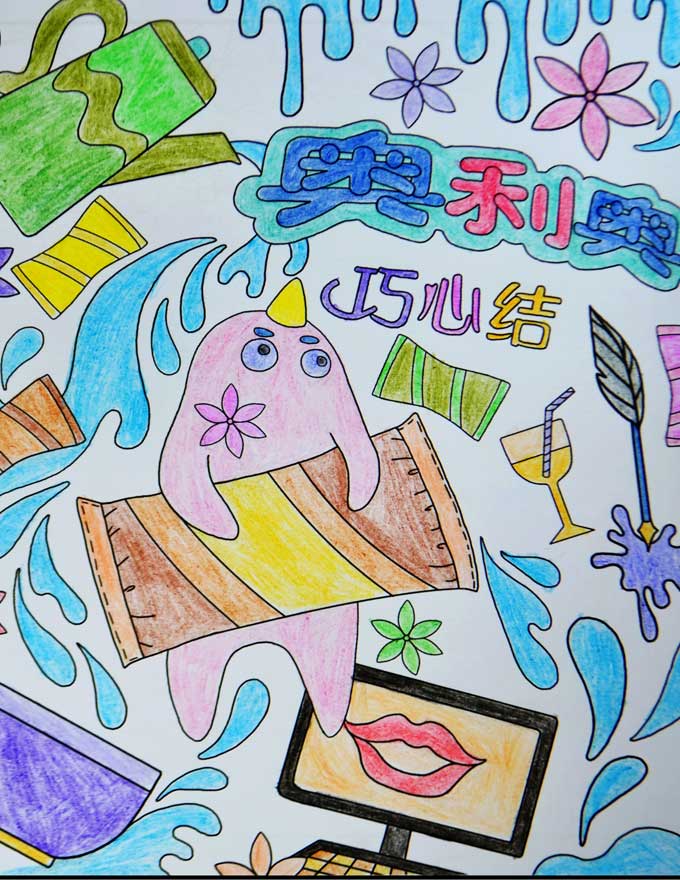 奥利奥
巧心结